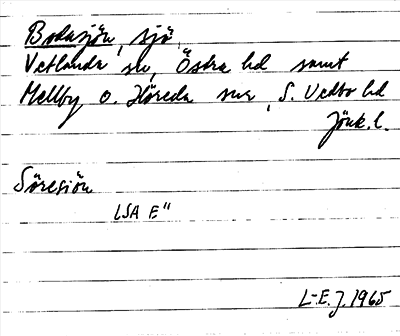 Bodasjön, sjö
Vetlanda sn, Östra hd samt
Mellby o. Höreda snr, S. Vedbo hd
Jönk. l.
Söresjön
LSA E"
L-E.J. 1965